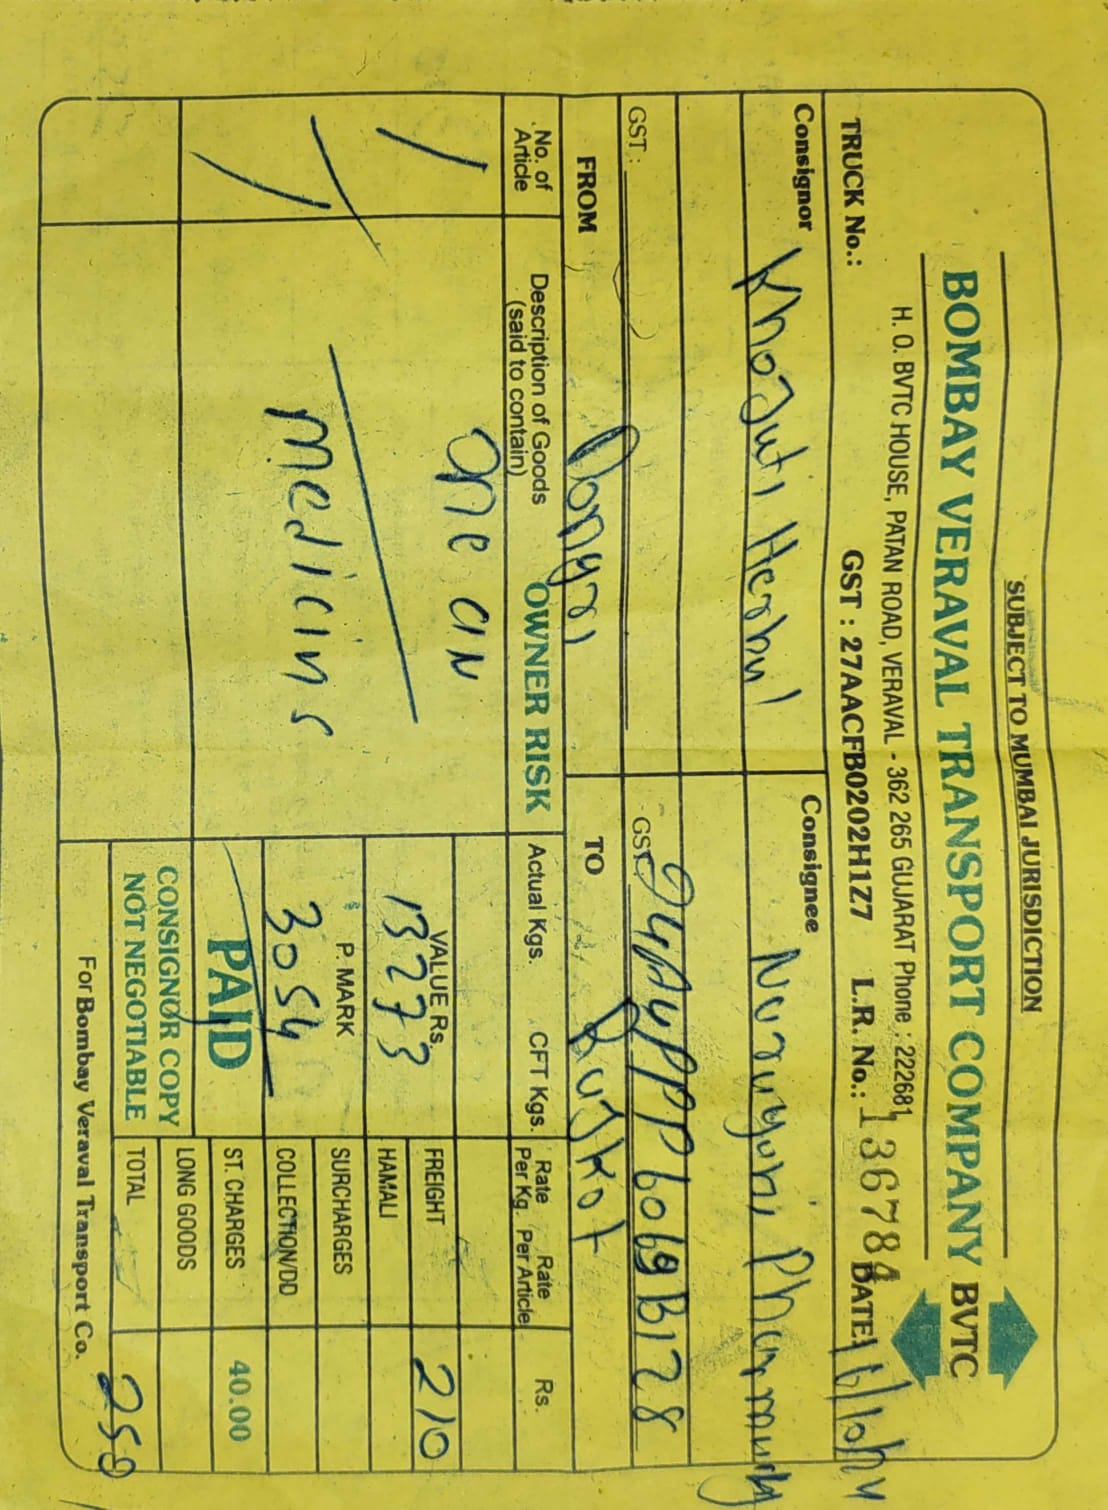 SUBJECT TO MUMBAI JURISDICTION
BOMBAY VERAVAL TRANSPORT COMPANY BVTC
H. O. BVTC HOUSE, PATAN ROAD, VERAVAL - 362 265 GUJARAT Phone : 222681
TRUCK No.: GST : 27AACFB0202H1Z7 L.R. No.: 136784 DATE:
Consignor Consignee
Herbal
GST : GST:
FROM Dongri TO Rajkot
No. of Article Description of Goods (said to contain) OWNER RISK Actual Kgs. CFT Kgs. Rate Per Kg. Rate Per Article Rs.
1 one
VALUE Rs. 13273 FREIGHT 210
HAMALI
P. MARK 3054 SURCHARGES
medicins
COLLECTION/DD
PAID ST. CHARGES 40.00
CONSIGNOR COPY LONG GOODS
NOT NEGOTIABLE TOTAL 250
For Bombay Veraval Transport Co.